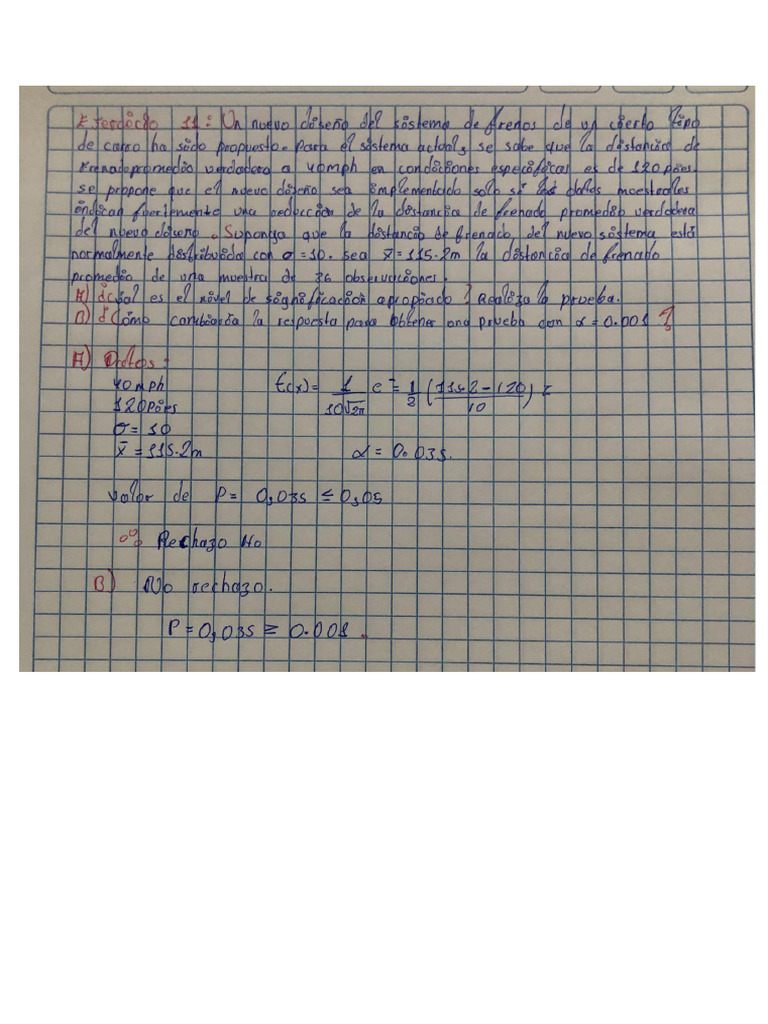 Ejercicio 11: Un nuevo diseño del sistema de frenos de un cierto tipo
de carro ha sido propuesto. Para el sistema actual, se sabe que la distancia de
frenado promedio verdadera a 40mph en condiciones específicas es de 120 pies.
se propone que el nuevo diseño sea implementado solo si los datos muestrales
indican fuertemente una reducción de la distancia de frenado promedio verdadera
del nuevo diseño. Suponga que la distancia de frenado del nuevo sistema está
normalmente distribuida con σ = 10. sea x̄ = 115.2m la distancia de frenado
promedio de una muestra de 36 observaciones.
A) ¿Cuál es el nivel de significación apropiado? Realiza la prueba.
B) ¿Cómo cambiaría la respuesta para obtener una prueba con α = 0.001?
A) Datos:
40mph
f(x) = 1/(10√2π) e^-1/2 (115.2 - 120 / 10)^2
120 Pies
σ = 10
x̄ = 115.2m
α = 0.035.
Valor de P = 0,035 ≤ 0,05
∴ Rechazo Ho
B) No rechazo.
P = 0,035 ≥ 0.001.